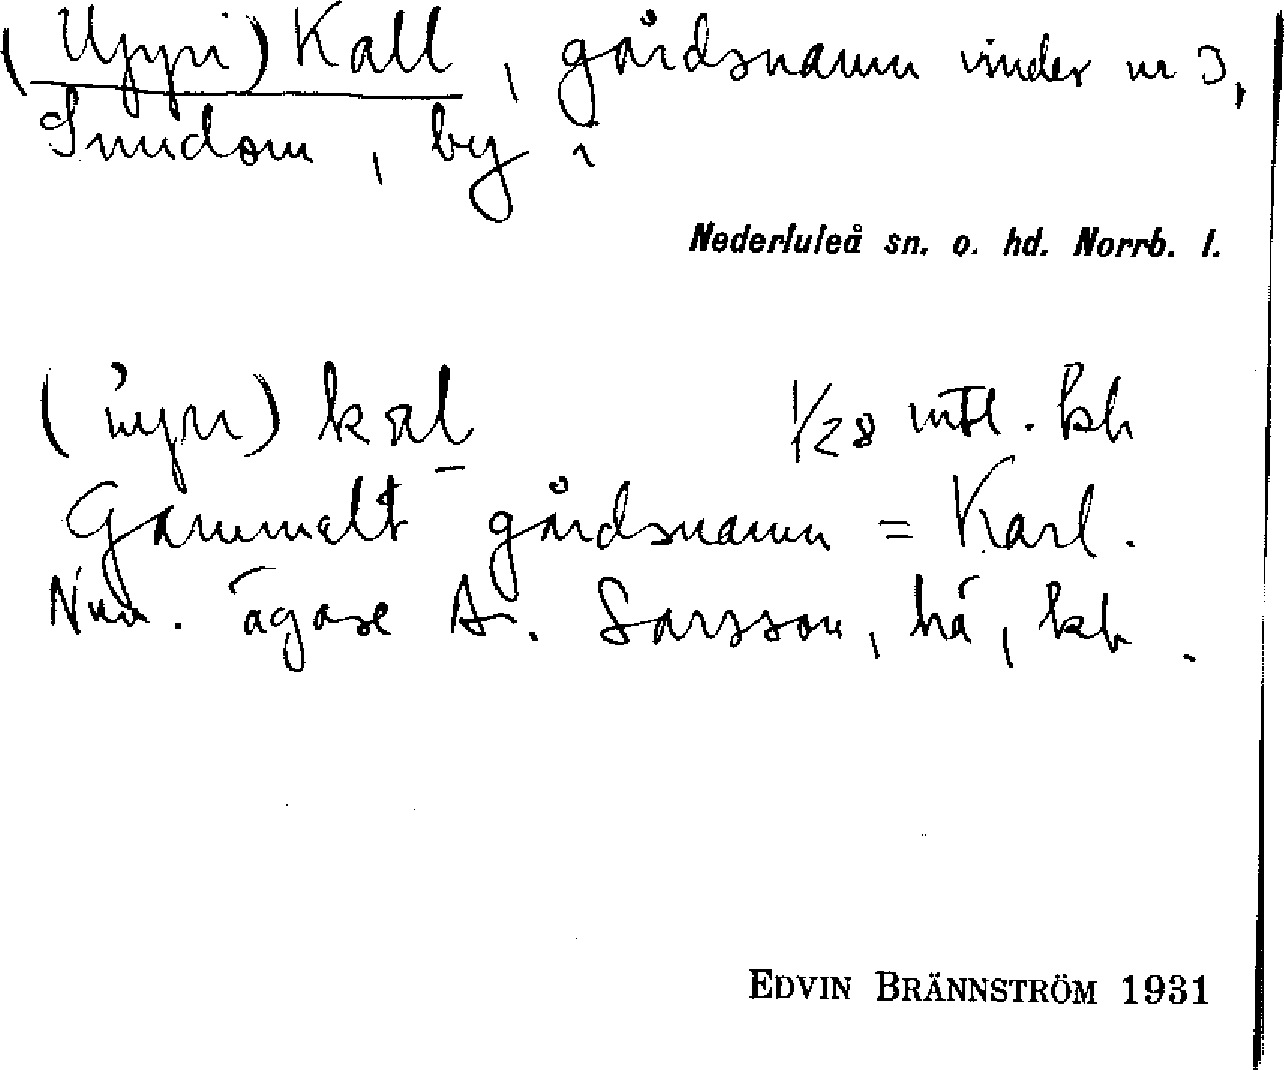 (Uppi) Kall, gårdsnamn under nr 3,
Smedom, by i
Nederluleå sn. o. hd. Norrb. l.
kal 1/28 mtl. kb
Gammalt gårdsnamn = Karl.
Nuv. ägare A. Larsson, hå, kb.
EDVIN BRÄNNSTRÖM 1931